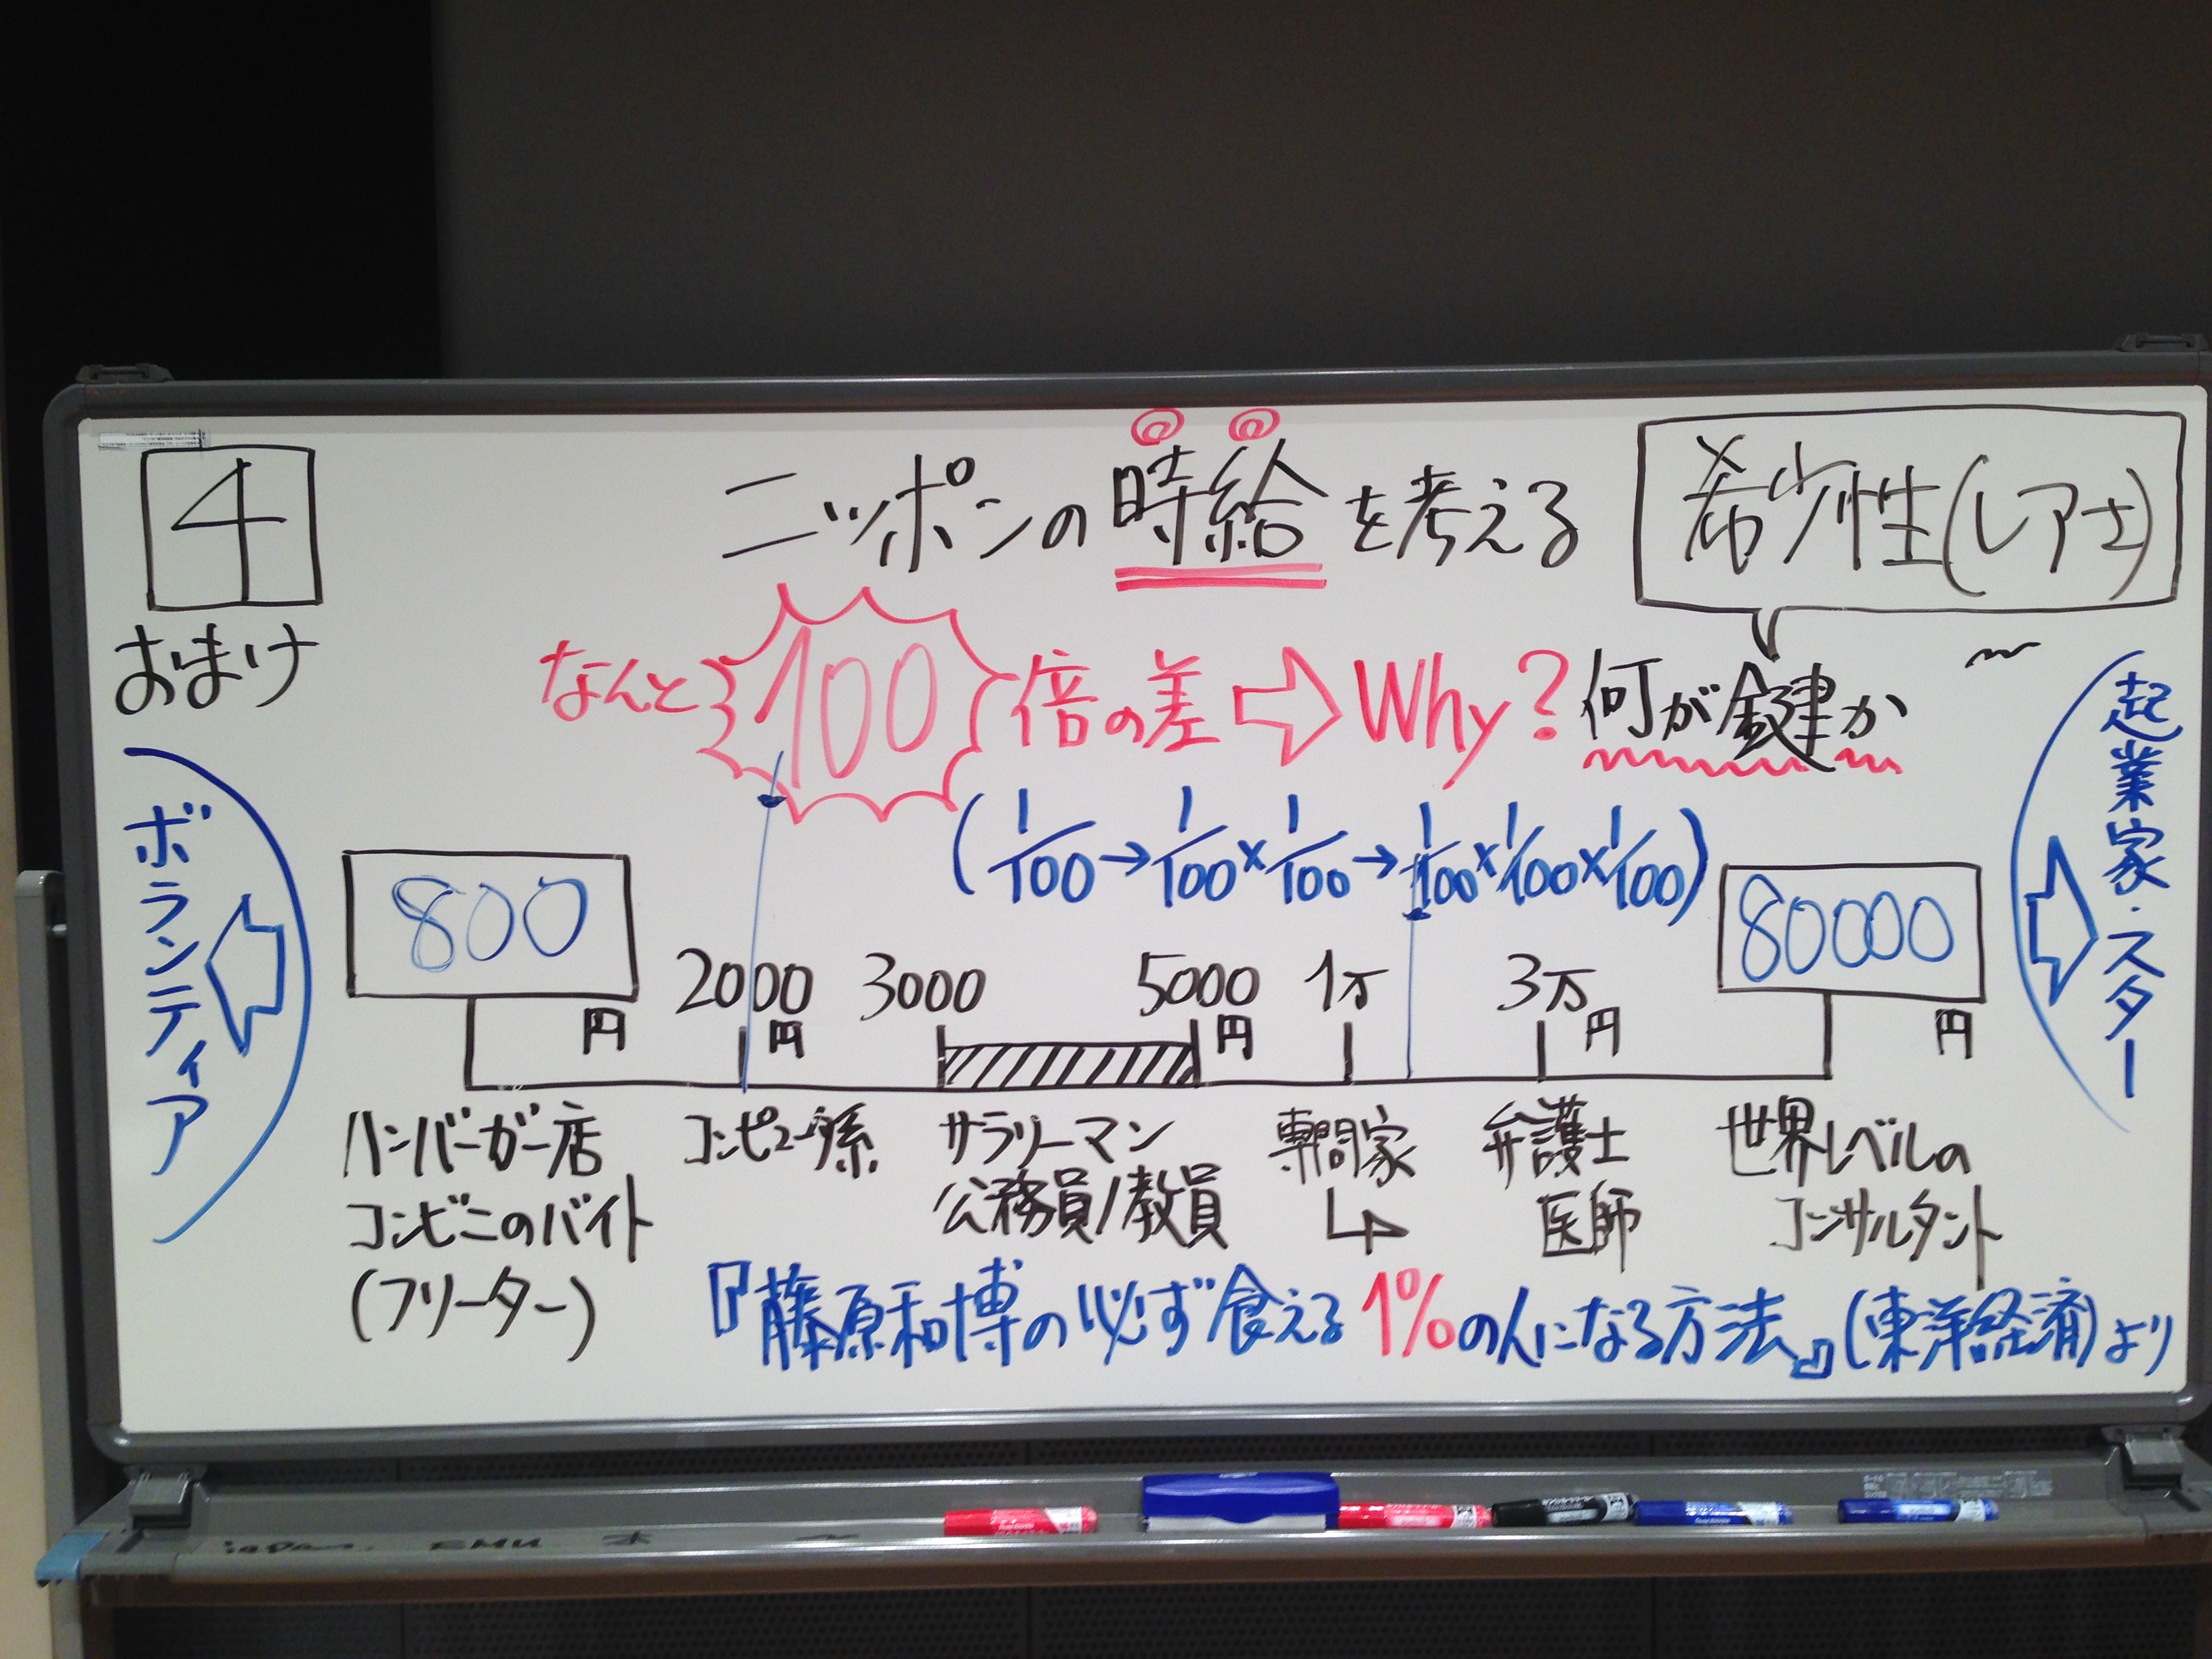 4
おまけ
ニッポンの時給を考える
希少性(レアさ)
なんと100倍の差⇨Why?何が鍵か
(1/100→1/100×1/100→1/100×1/100×1/100)
ボランティア
起業家・スター
800円
2000円
3000
5000円
1万
3万円
80000円
ハンバーガー店
コンビニのバイト
(フリーター)
コンピュータ系
サラリーマン
公務員/教員
専門家
弁護士
医師
世界レベルの
コンサルタント
『藤原和博の必ず食える1%の人になる方法』(東洋経済)より